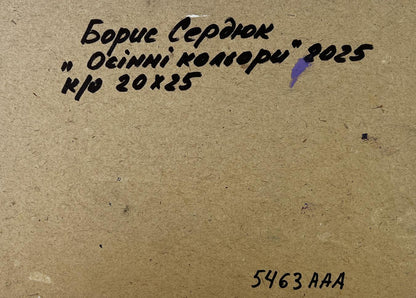 Борис Сердюк
„Осінні кольори" 2025
к/о 20х25
5463 ААА